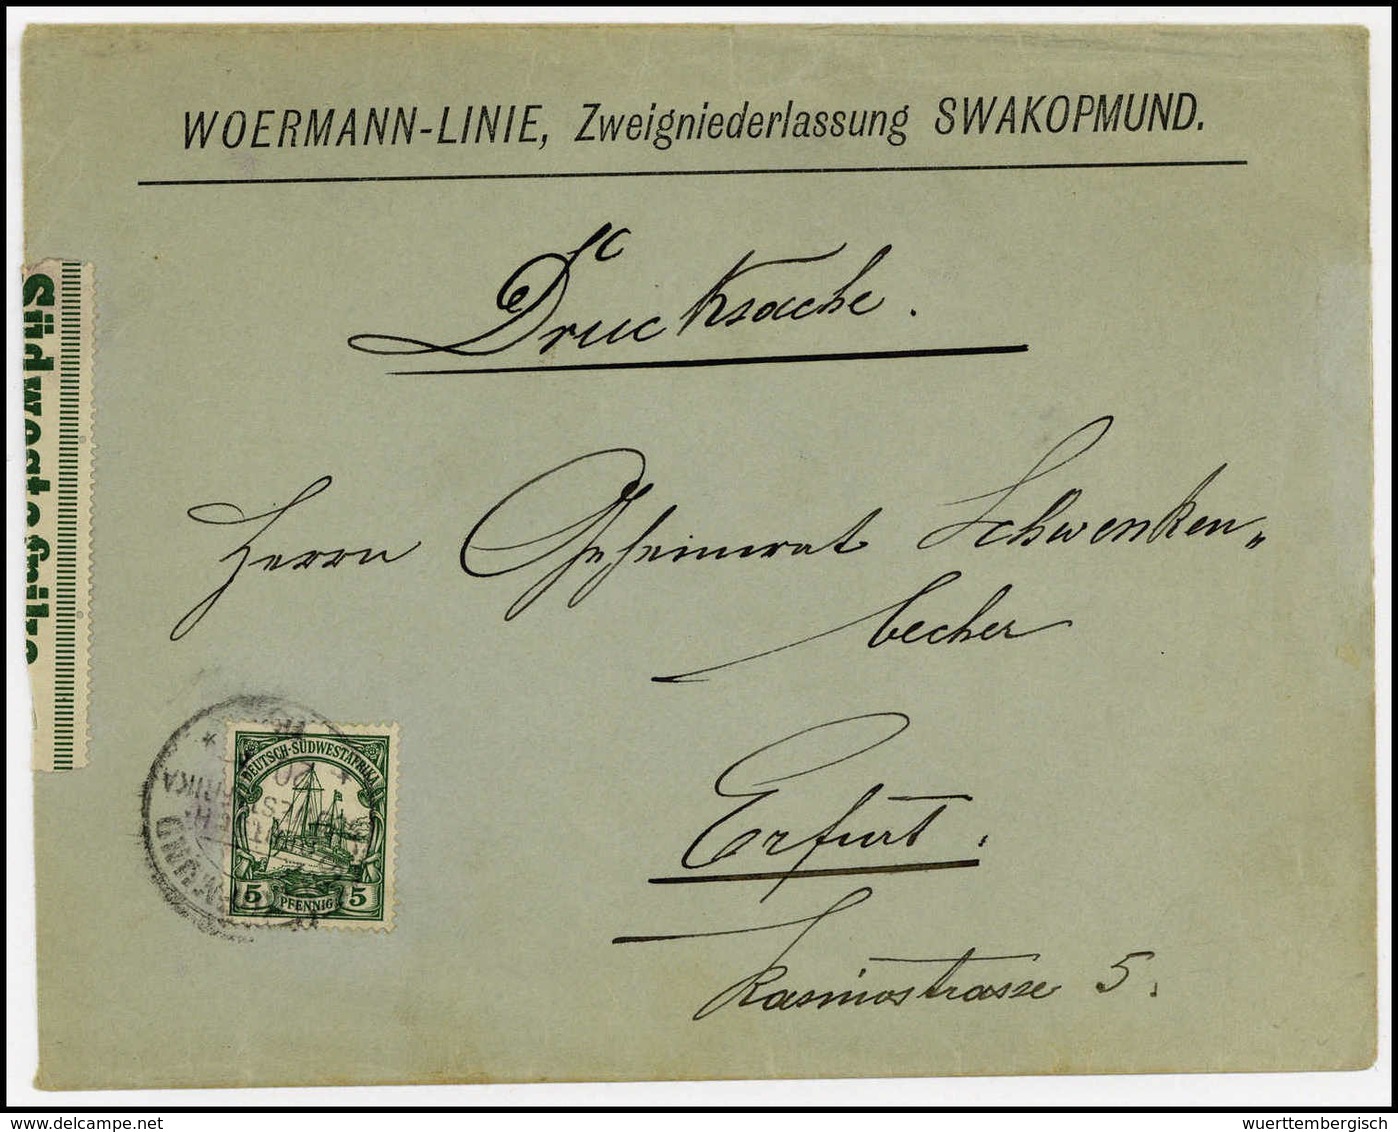 WOERMANN-LINIE, Zweigniederlassung SWAKOPMUND.
Drucksache.
Herrn Geheimrat Schwenken„
becher
Erfurt.
Kasinostrasse 5.
Südwestafrika
DEUTSCH-SÜDWESTAFRIKA
5 PFENNIG 5
wuerttembergisch